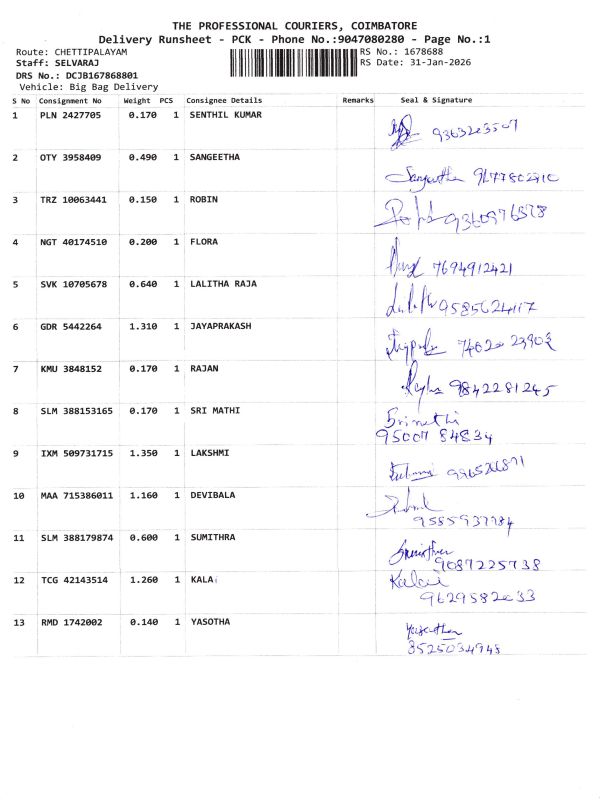 THE PROFESSIONAL COURIERS, COIMBATORE
Delivery Runsheet - PCK - Phone No.:9047080280 - Page No.:1
Route: CHETTIPALAYAM RS No.: 1678688
Staff: SELVARAJ RS Date: 31-Jan-2026
DRS No.: DCJB167868801
Vehicle: Big Bag Delivery
S No Consignment No Weight PCS Consignee Details Remarks Seal & Signature
1 PLN 2427705 0.170 1 SENTHIL KUMAR
2 OTY 3958409 0.490 1 SANGEETHA
Sangeetha
3 TRZ 10063441 0.150 1 ROBIN
4 NGT 40174510 0.200 1 FLORA
7694912421
5 SVK 10705678 0.640 1 LALITHA RAJA
6 GDR 5442264 1.310 1 JAYAPRAKASH
7 KMU 3848152 0.170 1 RAJAN
9842281245
8 SLM 388153165 0.170 1 SRI MATHI
Srimathi
95007 84834
9 IXM 509731715 1.350 1 LAKSHMI
10 MAA 715386011 1.160 1 DEVIBALA
11 SLM 388179874 0.600 1 SUMITHRA
9087225738
12 TCG 42143514 1.260 1 KALAi
Kalai
13 RMD 1742002 0.140 1 YASOTHA
8525034948